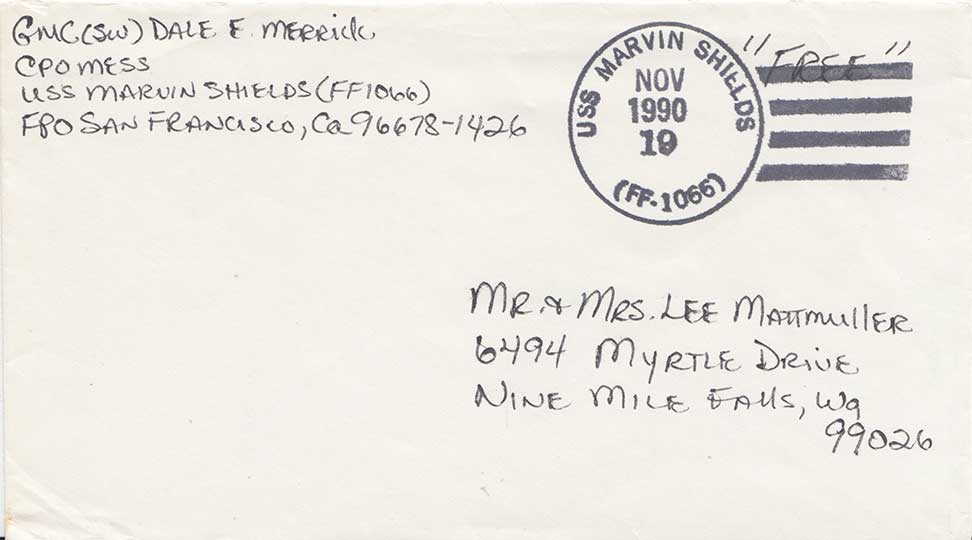 GMC(SW) DALE E. MERRICK
CPO MESS
USS MARVIN SHIELDS (FF1066)
FPO SAN FRANCISCO, Ca 96678-1426
USS MARVIN SHIELDS
NOV
1990
19
(FF-1066)
"FREE"
MR. & MRS. LEE MATTMULLER
6494 MYRTLE DRIVE
NINE MILE FALLS, Wa
99026